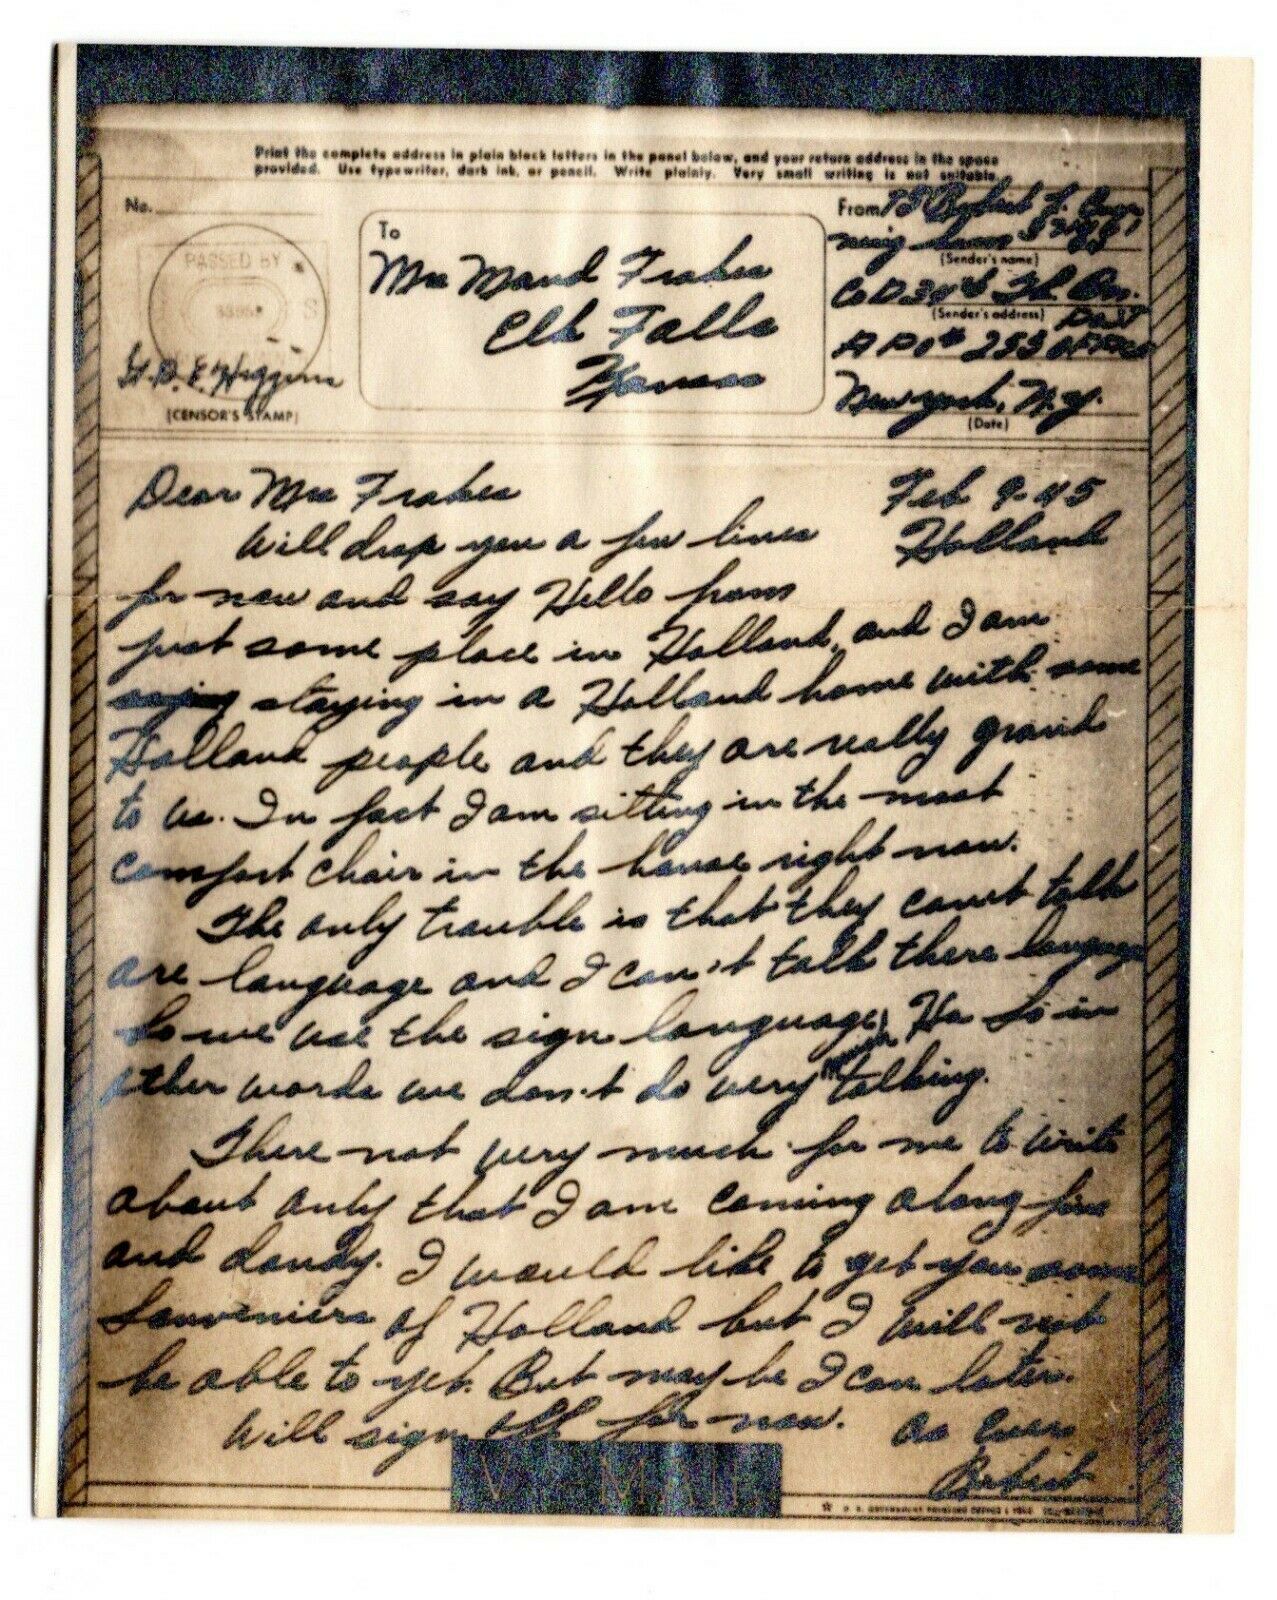 Print the complete address in plain block letters in the panel below, and your return address in the space
provided. Use typewriter, dark ink, or pencil. Write plainly. Very small writing is not suitable.
No.
PASSED BY
S
Higgins
(CENSOR'S STAMP)
To
Mrs Maud Frakes
Elk Falls
Kansas
From
(Sender's name)
Co D 34th
(Sender's address)
APO # 253
New York, N.Y.
(Date)
Dear Mrs Frakes
Feb 9-45
Holland
Will drop you a few lines
for now and say Hello from
just some place in Holland, and I am
saying staying in a Holland home with some
Holland people and they are really grand
to us. In fact I am sitting in the most
comfort chair in the house right now.
The only trouble is that they can't talk
are language and I can't talk there language
So we use the sign language, Ha So in
other words we don't do very much talking.
There not very much for me to write
about only that I am coming along fine
and dandy. I would like to get you some
Souveniers of Holland but I will not
be able to yet. But may be I can later.
Will sign off for now. As Ever
V-MAIL